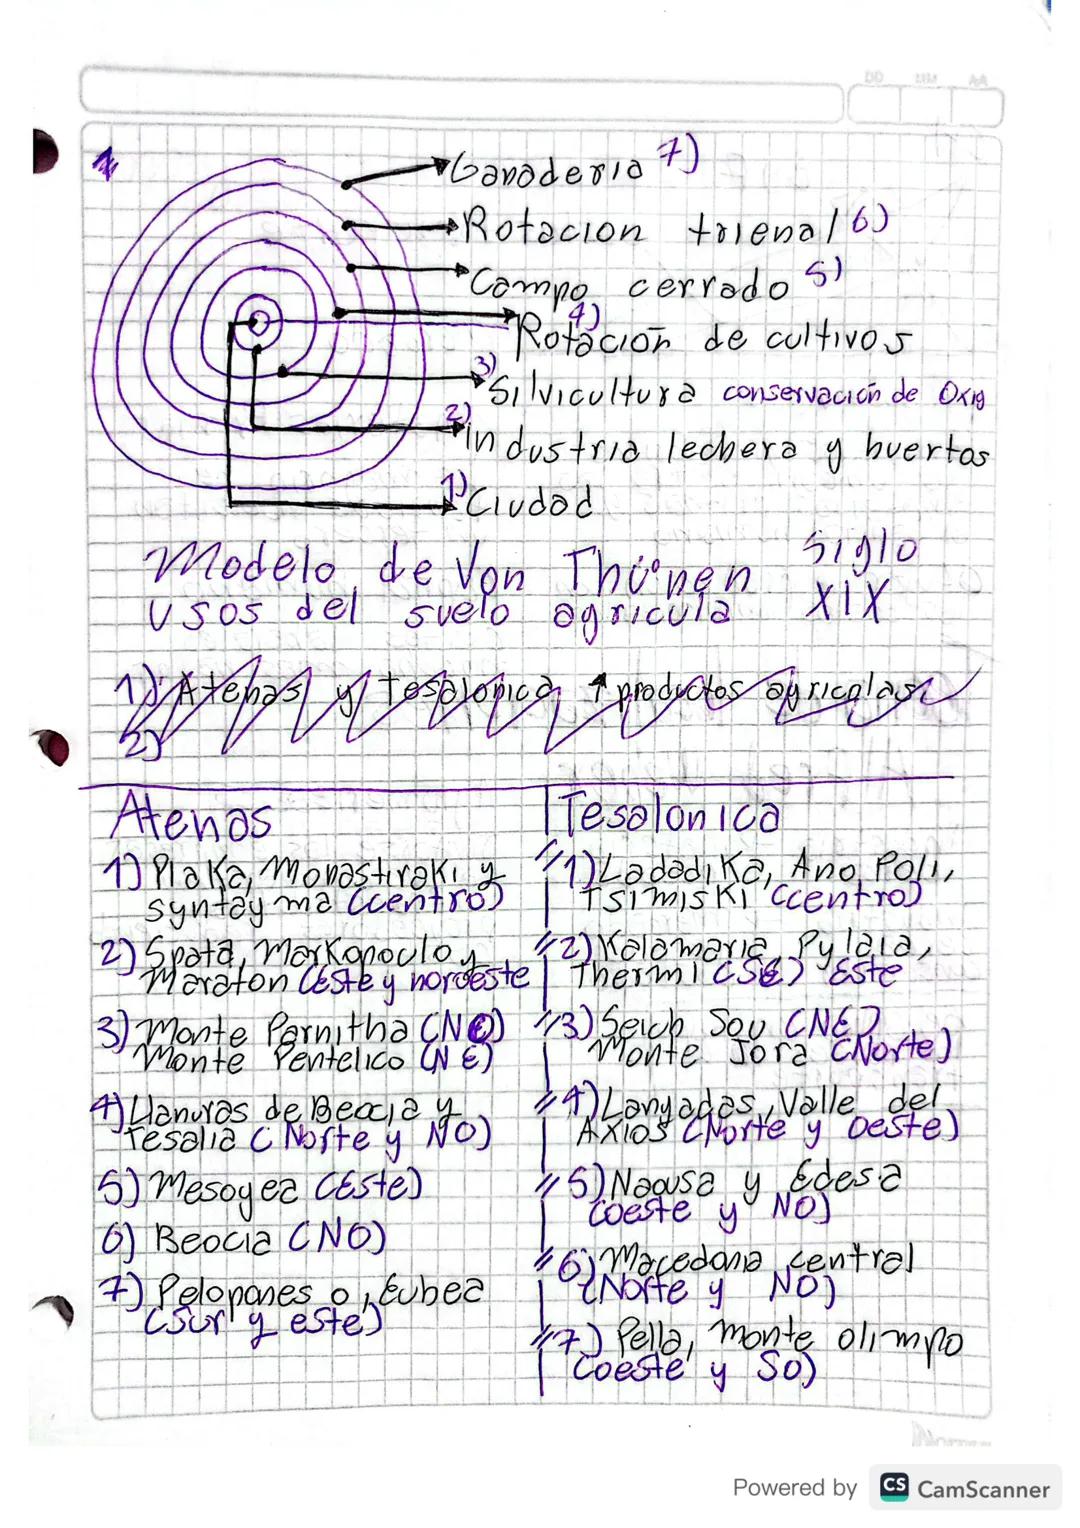 DD MM AA
Ganaderia 7)
Rotacion trienal 6)
Campo cerrado 5)
4)
Rotación de cultivos
3) Silvicultura conservación de Oxig
2) industria lechera y huertos
1) Ciudad
Modelo de Von Thünen Siglo
usos del suelo agricula XIX
1) Atenas y tesalonica ↑ productos agricolas
2)
Atenas
1) Plaka, Monastiraki y
syntagma (centro)
2) Spata, Markopoulo y
Maraton (este y noroeste
3) Monte Parnitha (NO)
Monte Pentelico (NE)
4) Llanuras de Beocia y
Tesalia (Norte y NO)
5) Mesoyea (Este)
6) Beocia (NO)
7) Pelopones o, Eubea
(Sur y este)
Tesalonica
1) Ladadika, Ano Poli,
Tsimiski (centro)
2) Kalamaria, Pylaia,
Thermi (SE) Este
3) Seich Sou (NE)
Monte Jora (Norte)
4) Langadas, Valle del
Axios (Norte y oeste)
5) Naousa y Edesa
(oeste y NO)
6) Macedonia central
(Norte y NO)
7) Pella, monte olimpo
(oeste y SO)
Powered by CS CamScanner